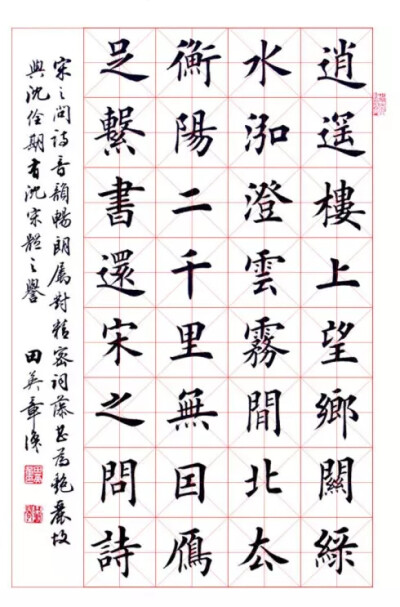 逍遥樓上望鄉關綠
水泓澄雲霧間北厺
衡陽二千里無囙鴈
足繫書還宋之問詩
宋之問詩音韻暢朗屬對精密詞藻甚為艷麗故
與沈佺期有沈宋體之譽 田英章